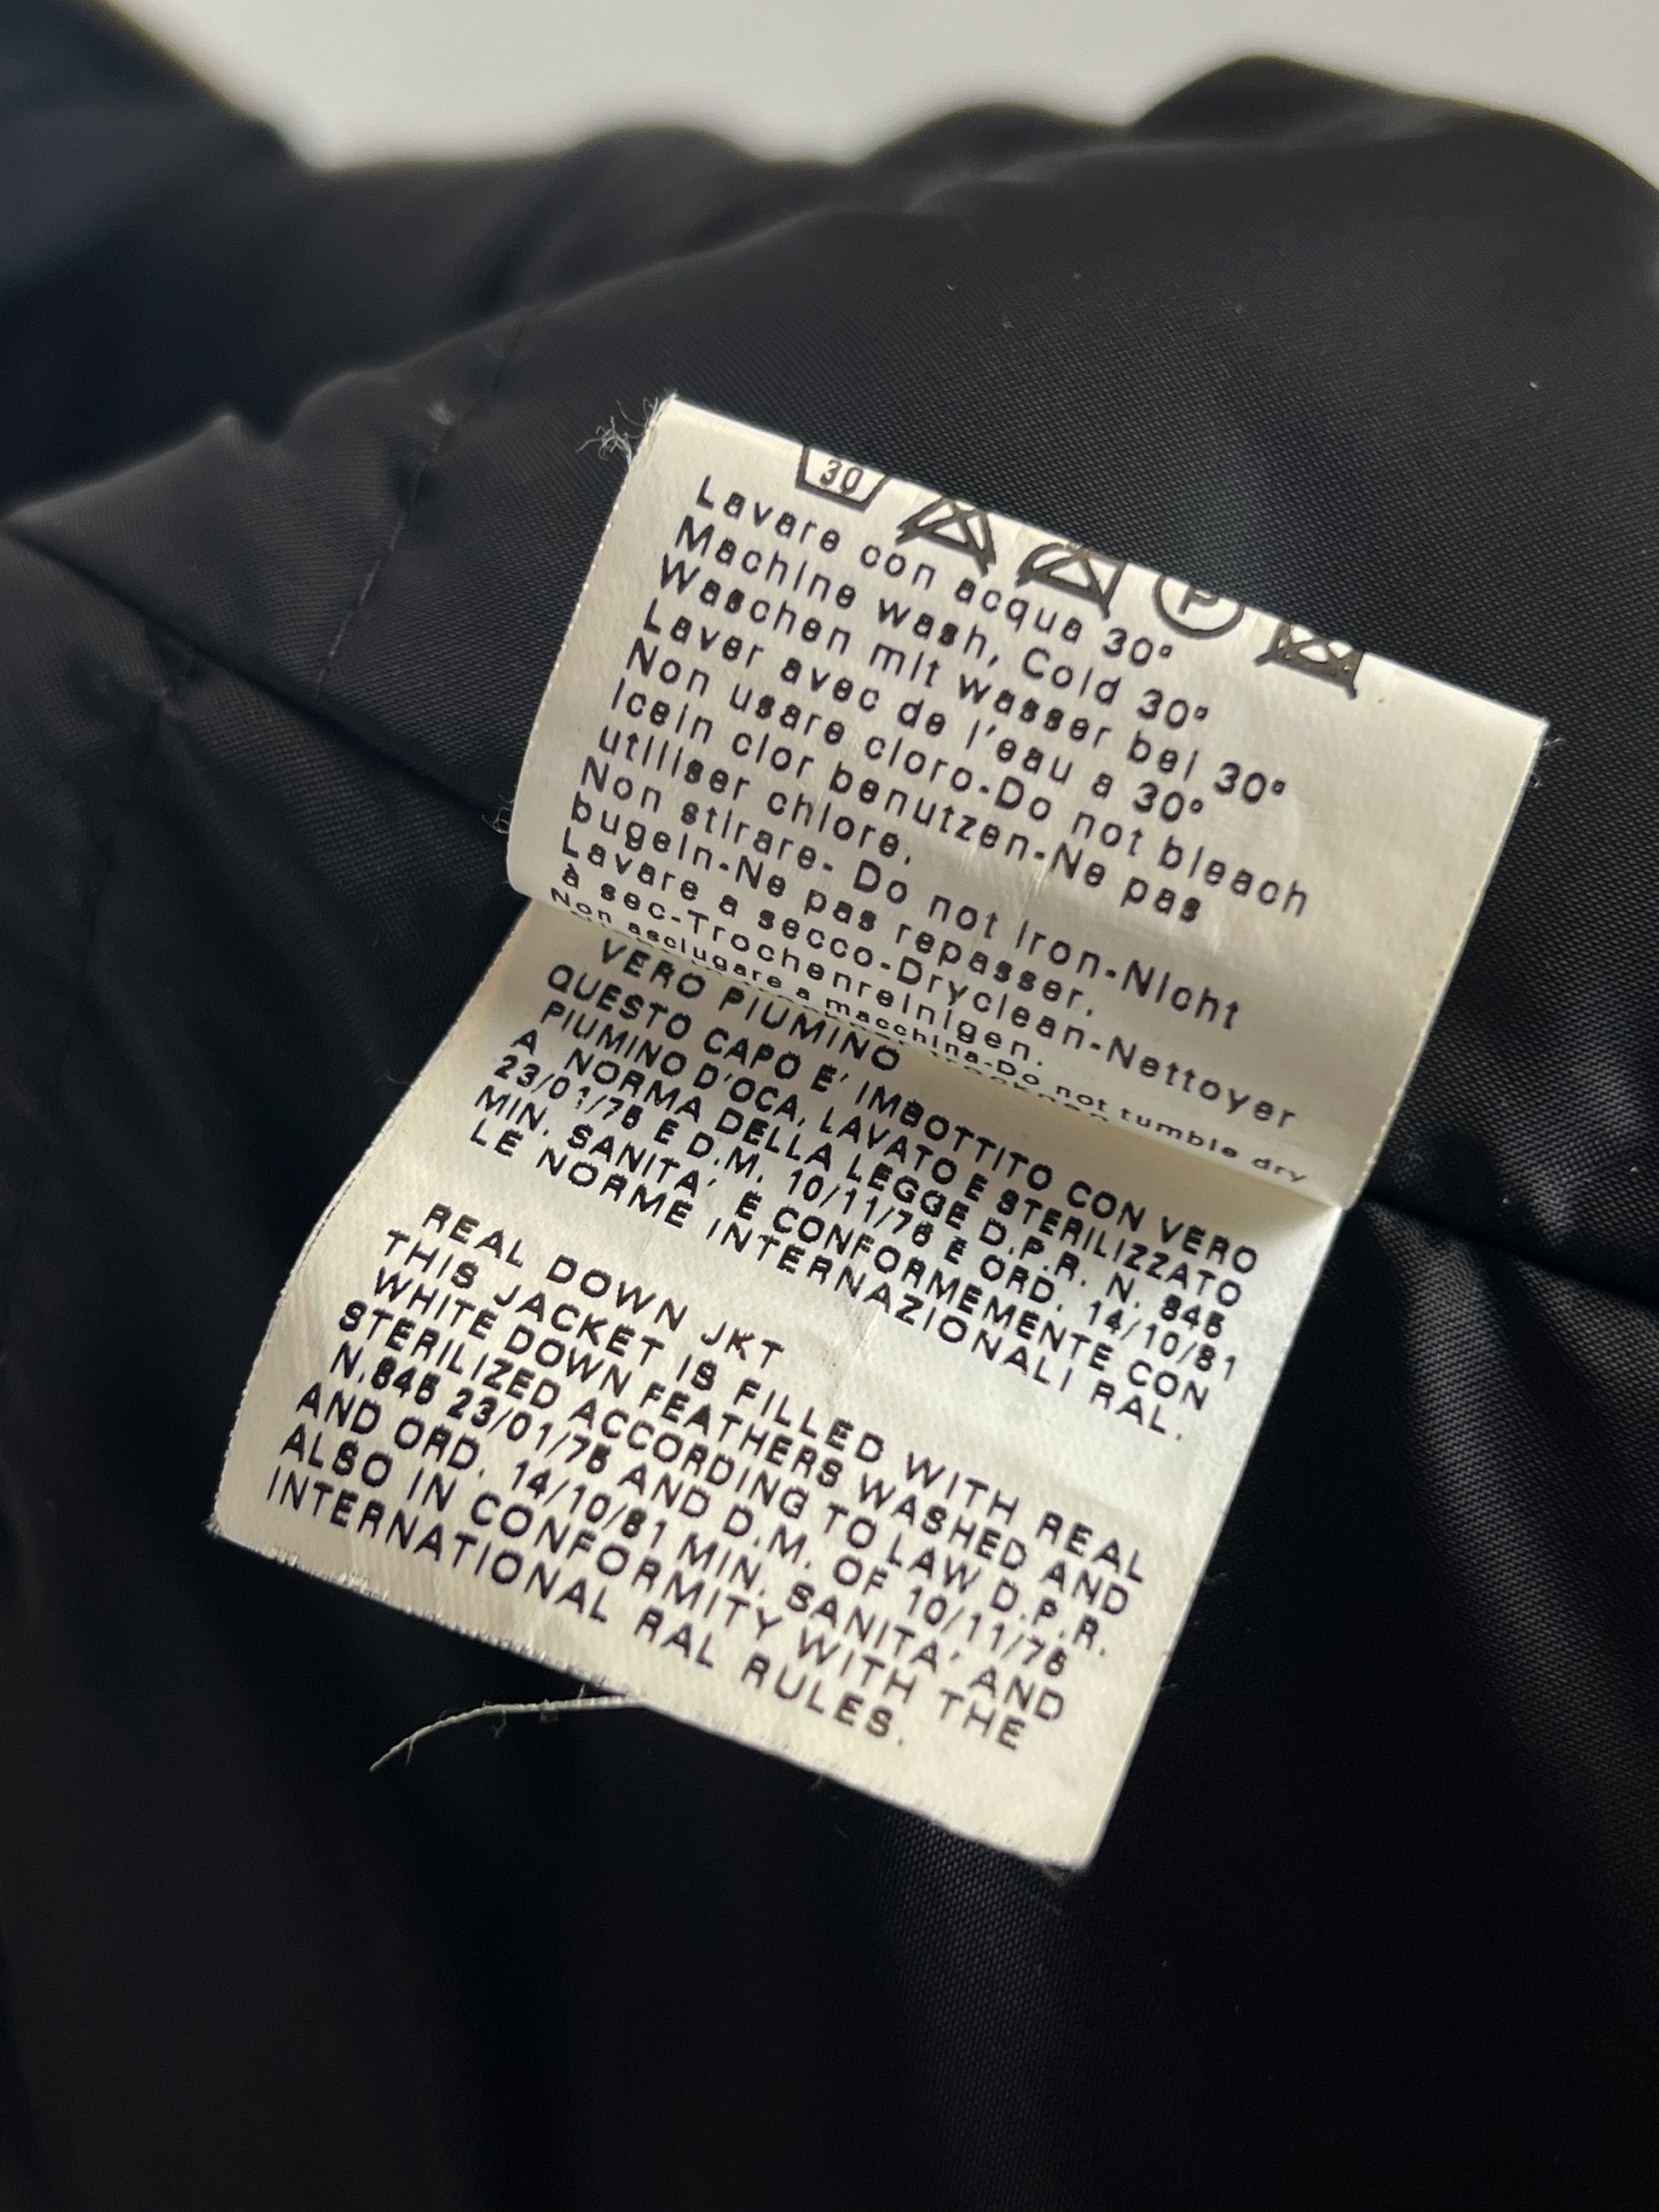 30 P
Lavare con acqua 30°
Machine wash, Cold 30°
Waschen mit wasser bei 30°
Laver avec de l'eau a 30°
Non usare cloro-Do not bleach
Icein clor benutzen-Ne pas
utiliser chlore.
Non stirare- Do not Iron-Nicht
bugeln-Ne pas repasser.
Lavare a secco-Dryclean-Nettoyer
à sec-Trochenreinigen.
Non asciugare a macchina-Do not tumble dry
VERO PIUMINO
QUESTO CAPO E' IMBOTTITO CON VERO
PIUMINO D'OCA, LAVATO E STERILIZZATO
A NORMA DELLA LEGGE D.P.R. N. 845
23/01/75 E D.M. 10/11/76 E ORD. 14/10/81
MIN. SANITA' E CONFORMEMENTE CON
LE NORME INTERNAZIONALI RAL.
REAL DOWN JKT
THIS JACKET IS FILLED WITH REAL
WHITE DOWN FEATHERS WASHED AND
STERILIZED ACCORDING TO LAW D.P.R.
N.845 23/01/75 AND D.M. OF 10/11/76
AND ORD. 14/10/81 MIN. SANITA' AND
ALSO IN CONFORMITY WITH THE
INTERNATIONAL RAL RULES.